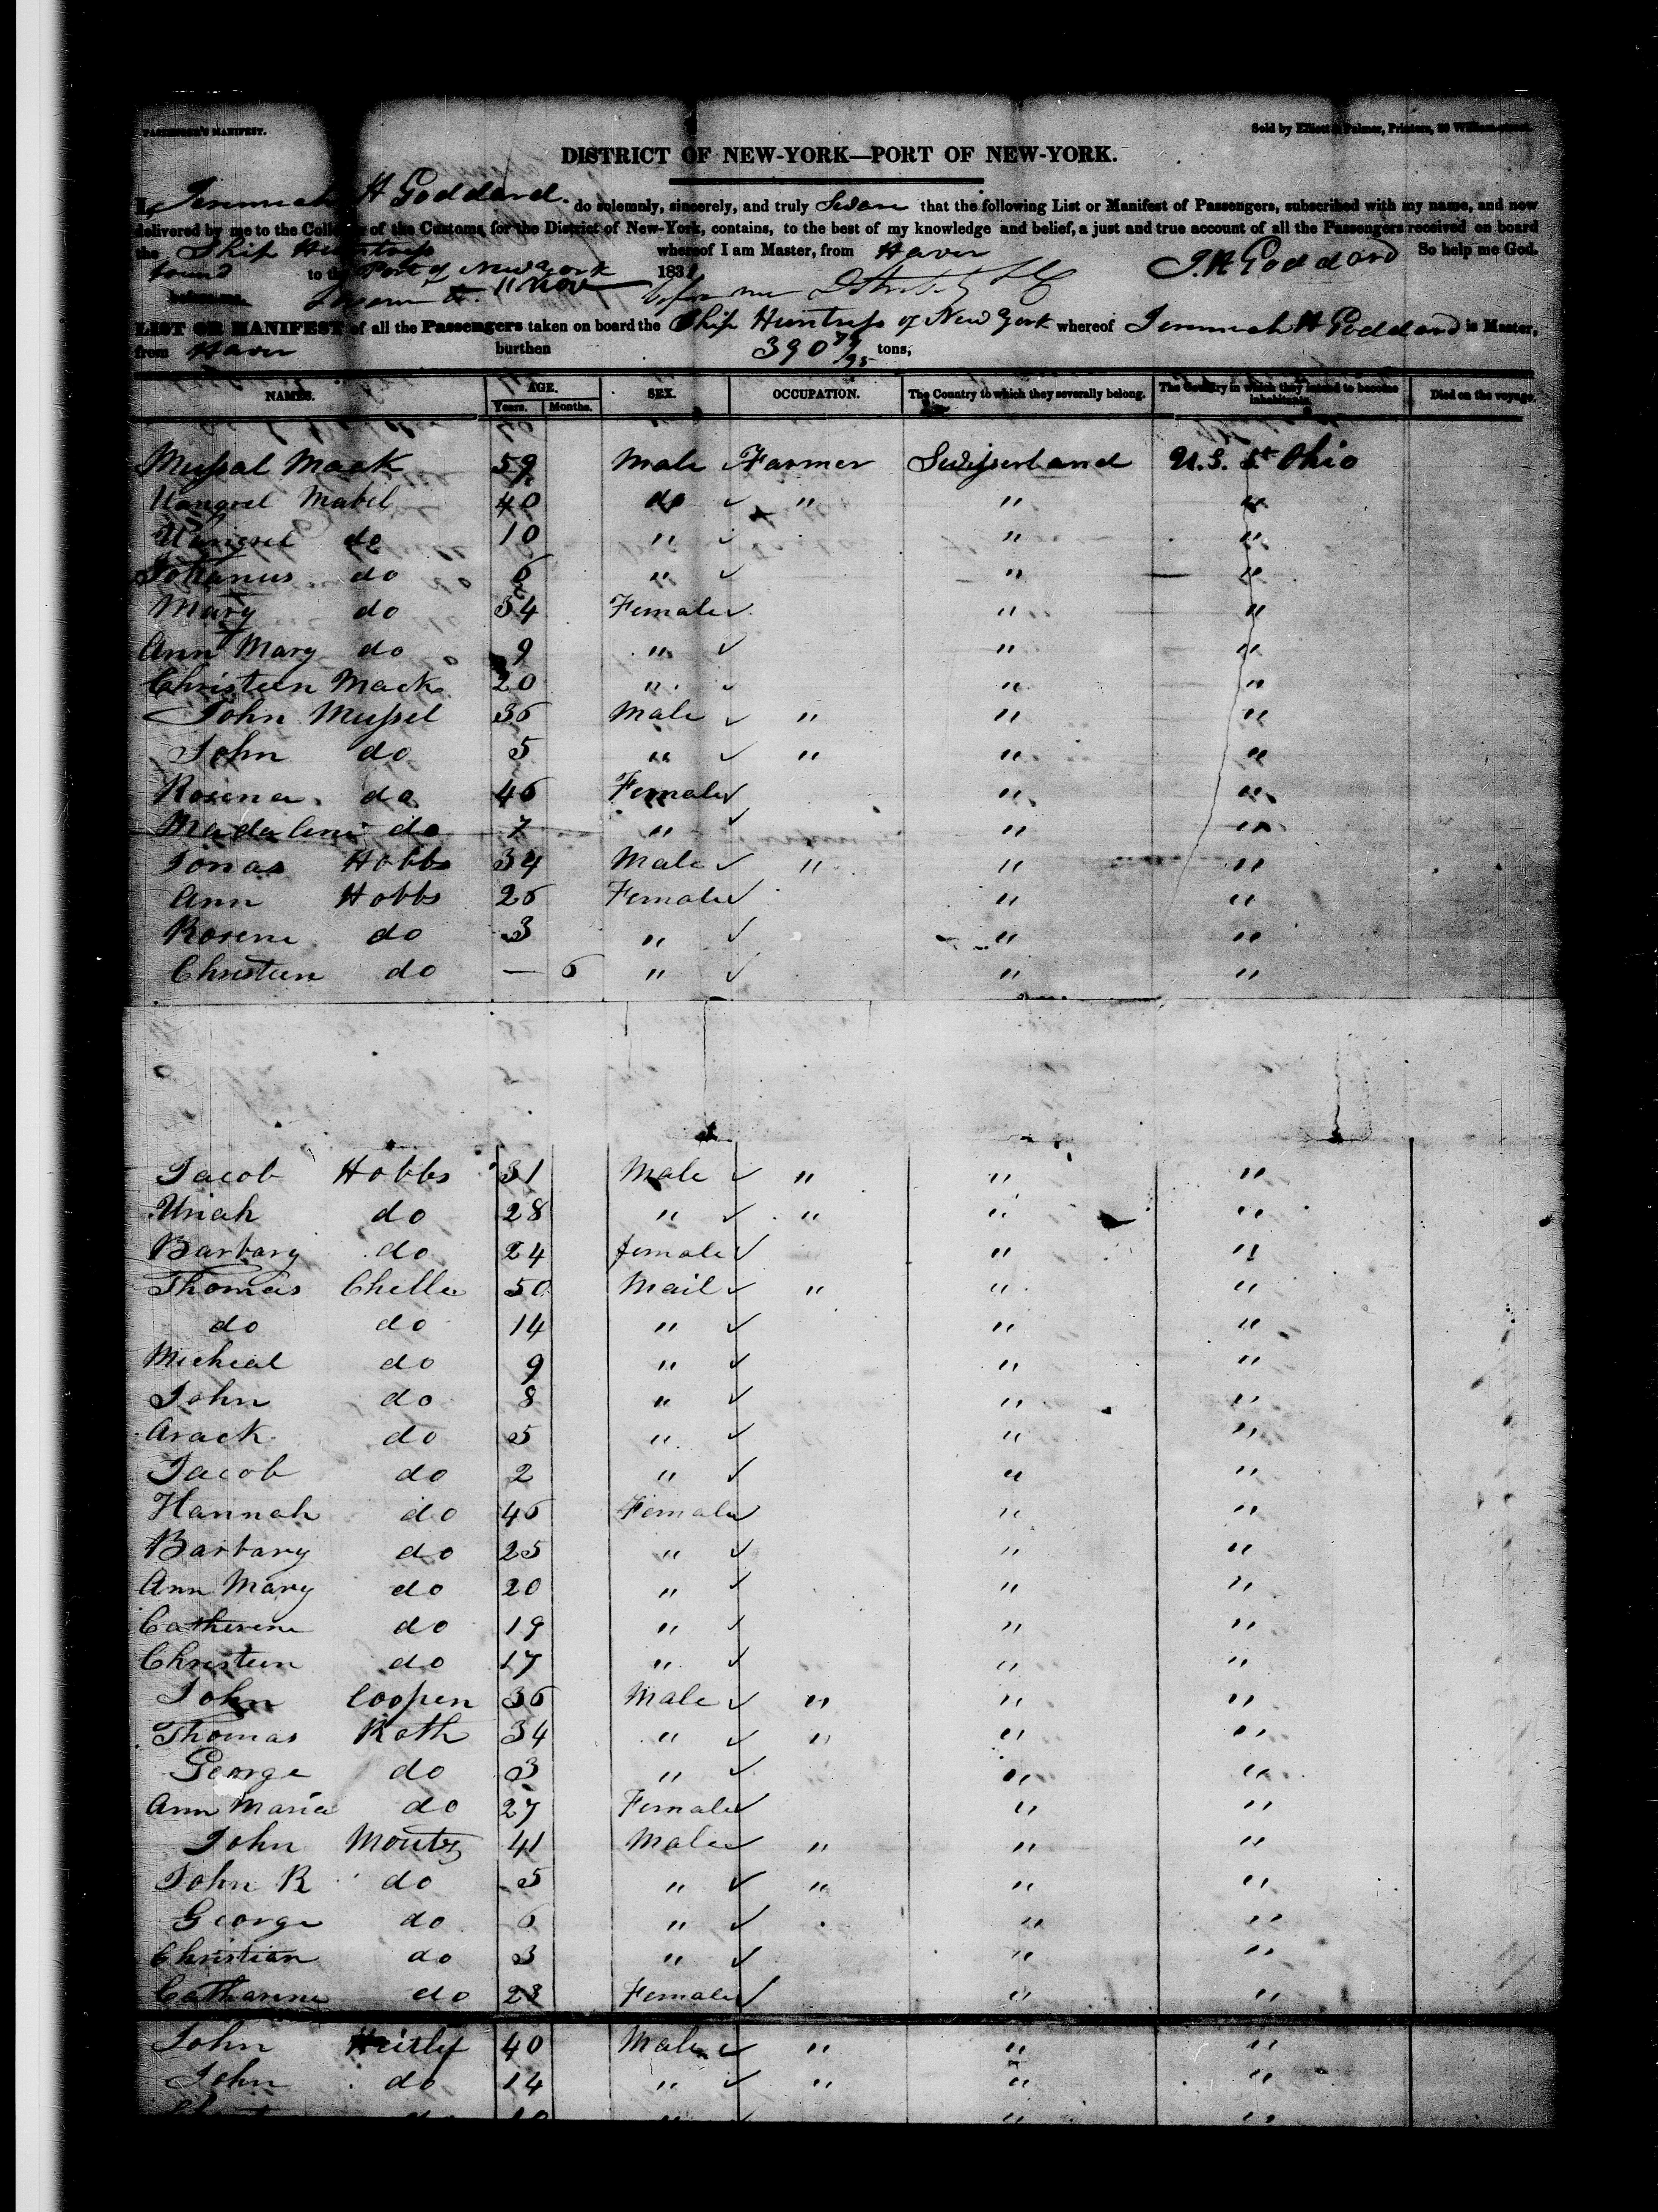 PASSENGER'S MANIFEST.
Sold by Elliott & Palmer, Printers, 20 William-street.
DISTRICT OF NEW-YORK—PORT OF NEW-YORK.
I, Jeremiah H Goddard do solemnly, sincerely, and truly Swear that the following List or Manifest of Passengers, subscribed with my name, and now
delivered by me to the Collector of the Customs for the District of New-York, contains, to the best of my knowledge and belief, a just and true account of all the Passengers received on board
the Ship Huntress whereof I am Master, from Haver J. H Goddard So help me God.
bound to the Port of New York 183
Sworn to 11 Nov before me
LIST OR MANIFEST of all the Passengers taken on board the Ship Huntress of New York whereof Jeremiah H Goddard is Master,
from Haver burthen 390 tons,
NAMES. AGE. SEX. OCCUPATION. The Country to which they severally belong. The Country in which they intend to become inhabitants. Died on the voyage.
Years. Months.
Mussal Mack 59 Male Farmer Swisserland U.S. St Ohio
Mabel 40 do " " "
do 10 " " "
Johanus do 6 " " "
Mary do 34 Female " "
Ann Mary do 9 " " "
Christeen Mack 20 " " "
John Mussel 36 Male " " "
John do 5 " " " "
Rosena do 46 Female " "
Madaleni do 7 " " "
Jonas Hobbs 34 Male " " "
Ann Hobbs 26 Female " "
Rosene do 3 " " "
Christeen do — 6 " " "
Jacob Hobbs 31 Male " " "
Uriah do 28 " " " "
Barbary do 24 female " "
Thomas Chelle 50 Mail " " "
do do 14 " " "
Micheal do 9 " " "
John do 8 " " "
Arack do 5 " " "
Jacob do 2 " " "
Hannah do 46 Female " "
Barbary do 25 " " "
Ann Mary do 20 " " "
Catherine do 19 " " "
Christeen do 17 " " "
John Coopen 36 Male " " "
Thomas Roth 34 " " " "
George do 3 " " "
Ann Maria do 27 Female " "
John Moutz 41 Male " " "
John R do 5 " " " "
George do 6 " " "
Christian do 3 " " "
Catharine do 23 Female " "
John 40 Male " " "
John do 14 " " " "